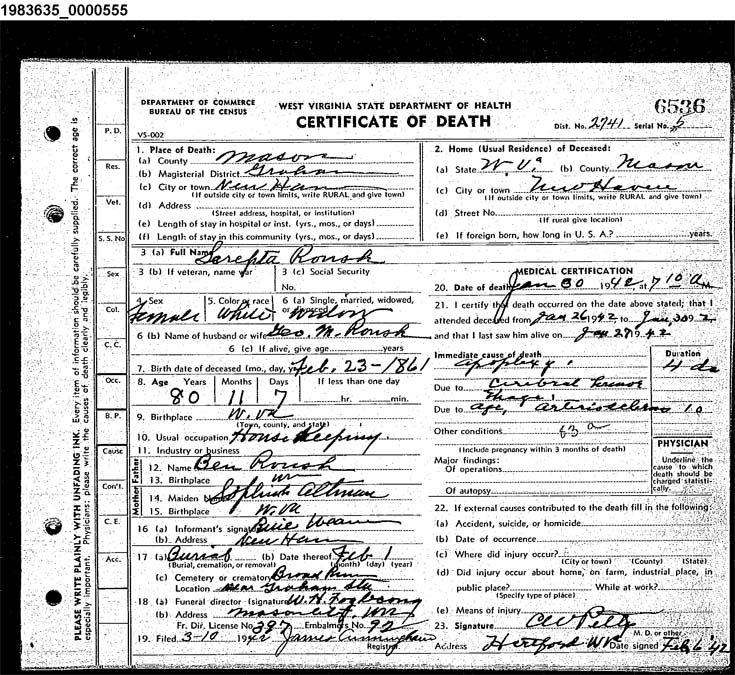 1983635_0000555
DEPARTMENT OF COMMERCE
BUREAU OF THE CENSUS
WEST VIRGINIA STATE DEPARTMENT OF HEALTH
CERTIFICATE OF DEATH
6536
Dist. No. 2741 Serial No. 5
VS-002
PLEASE WRITE PLAINLY WITH UNFADING INK. Every item of information should be carefully supplied. The correct age is
especially important. Physicians: please write the causes of death clearly and legibly.
P. D.
Res.
Vet.
S. S. No
Sex
Col.
C. C.
Occ.
B. P.
Cause
Con't.
C. E.
Acc.
1. Place of Death:
(a) County Mason
(b) Magisterial District Graham
(c) City or town New Haven
(If outside city or town limits, write RURAL and give town)
(d) Address
(Street address, hospital, or institution)
(e) Length of stay in hospital or inst. (yrs., mos., or days)
(f) Length of stay in this community (yrs., mos., or days)
2. Home (Usual Residence) of Deceased:
(a) State W. Va (b) County Mason
(c) City or town New Haven
(If outside city or town limits, write RURAL and give town)
(d) Street No.
(If rural give location)
(e) If foreign born, how long in U. S. A.? years.
3 (a) Full Name Sarepta Roush
3 (b) If veteran, name war 3 (c) Social Security
No.
4. Sex 5. Color or race 6 (a) Single, married, widowed,
or divorced
Female White Widow
6 (b) Name of husband or wife Geo. M. Roush
6 (c) If alive, give age years
7. Birth date of deceased (mo., day, yr.) Feb. 23-1861
8. Age Years Months Days If less than one day
80 11 7 hr. min.
9. Birthplace W. Va
(Town, county, and state)
10. Usual occupation House Keeping
11. Industry or business
Father
12. Name Ben Roush
13. Birthplace
Mother
14. Maiden Name Altman
15. Birthplace W. Va
16 (a) Informant's signature
(b) Address New Haven
17 (a) Burial (b) Date thereof Feb 1
(Burial, cremation, or removal) (month) (day) (year)
(c) Cemetery or crematory Broad Run
Location near Graham Sta
18 (a) Funeral director (signature) W. H. Foglesong
(b) Address Mason City, W Va
Fr. Dir. License No. 397 Embalmers No. 92
19. Filed 3-10 1942 James Cunningham
Registrar
MEDICAL CERTIFICATION
20. Date of death Jan 30 1942 at 7 10 a M.
21. I certify that death occurred on the above stated; that I
attended deceased from Jan 26 1942 to Jan 30 1942
and that I last saw him alive on Jan 27 1942
Immediate cause of death Duration
Apoplexy 4 ds
Due to Cerebral hemorrhage
Due to age, arteriosclerosis 10
Other conditions 83 a
(Include pregnancy within 3 months of death)
Major findings:
Of operations
Of autopsy
PHYSICIAN
Underline the
cause to which
death should be
charged statistically.
22. If external causes contributed to the death fill in the following:
(a) Accident, suicide, or homicide
(b) Date of occurrence
(c) Where did injury occur?
(City or town) (County) (State)
(d) Did injury occur about home, on farm, industrial place, in
public place? While at work?
(Specify type of place)
(e) Means of injury
23. Signature CW Petty
M. D. or other
Address Hartford W Va Date signed Feb 6 '42